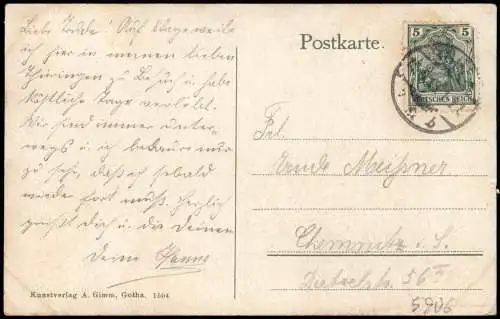 Liebe Trude! Auf Tage weile
ich hier in meinem lieben
Thüringen zu Besuch u. habe
köstliche Tage verlebt.
Wir sind immer unter-
wegs u. ich bedaure nur
zu sehr, daß ich sobald
wieder fort muß. Herzlich
grüßt Dich u. die Deinen
Deine Hanna
Kunstverlag A. Gimm, Gotha. 1504
Postkarte.
5 5
DEUTSCHES REICH
Frl.
Trude Meißner
Chemnitz i. S.
56 III
5906